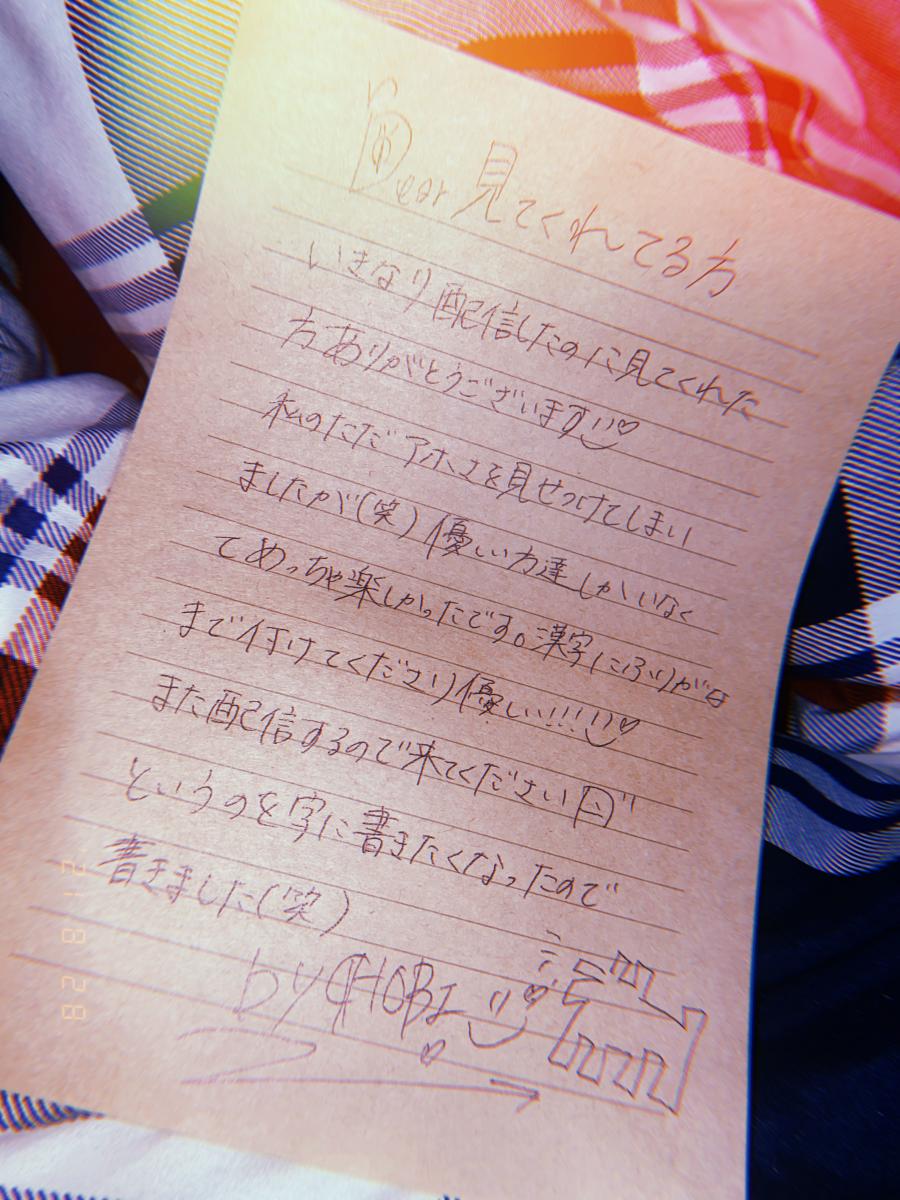 Dear 見てくれてる方
いきなり配信したのに見てくれた
方ありがとうございます
私のただアホさを見せつけてしまい
ましたが(笑)優しい方達しかいなく
てめっちゃ楽しかったです。漢字にふりがな
まで付けてくださり優しい!!!!
また配信するので来てください
というのを字に書きたくなったので
書きました(笑)
by
21 8 28